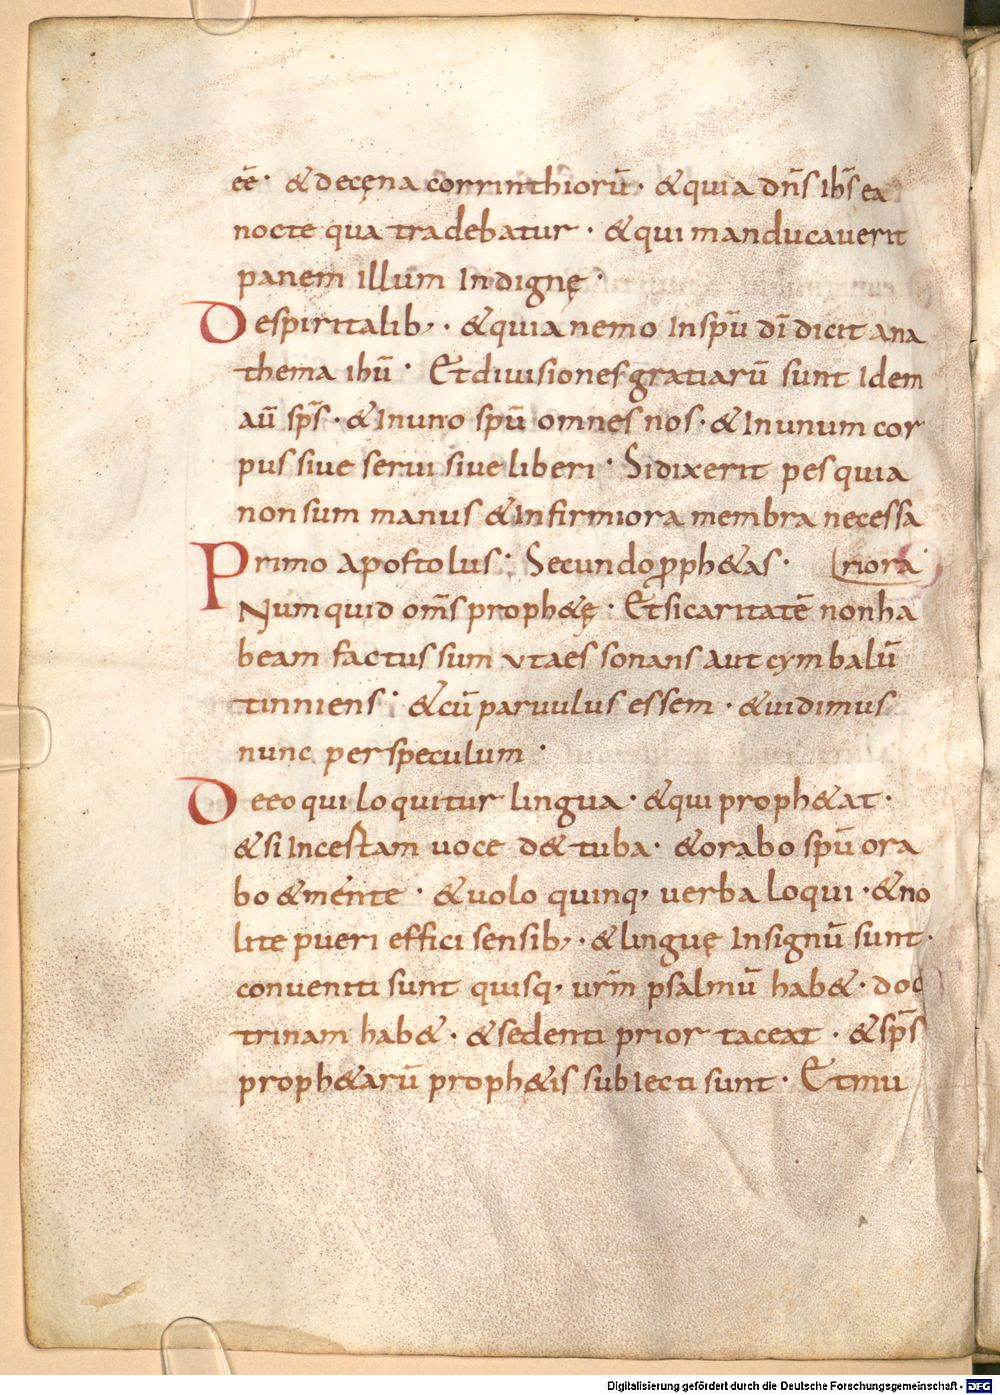 eē· & decęna corrinthiorū· & quia dn̄s ihs̄ ea
nocte qua tradebatur· & qui manducauerit
panem illum Indignę·
De spiritalib;· & quia nemo In spū dī dicit ana
thema ihū· Et diuisiones gratiarū sunt Idem
aū sps̄· & In uno spū omnes nos· & In unum cor
pus siue serui siue liberi· Si dixerit pes quia
non sum manus & Infirmiora membra necessa
Primo apostolus· Secundo ꝓph&as· riora
Numquid om̄s proph&ę· Et si caritatē non ha
beam factus sum ut aes sonans aut cymbalū
tinniens· & cū paruulus essem· & uidimus
nunc per speculum·
De eo qui loquitur lingua· & qui proph&at·
& si Incestam uoce d& tuba· & orabo spū ora
bo & mente· & uolo quinq; uerba loqui· & no
lite pueri effici sensib;· & linguę In signū sunt·
conueniti sunt quisq; urm̄ psalmū hab&· doc
trinam hab&· & sedenti prior taceat· & sps̄
proph&arū proph&is subiecti sunt· Et mu
Digitalisierung gefördert durch die Deutsche Forschungsgemeinschaft - DFG